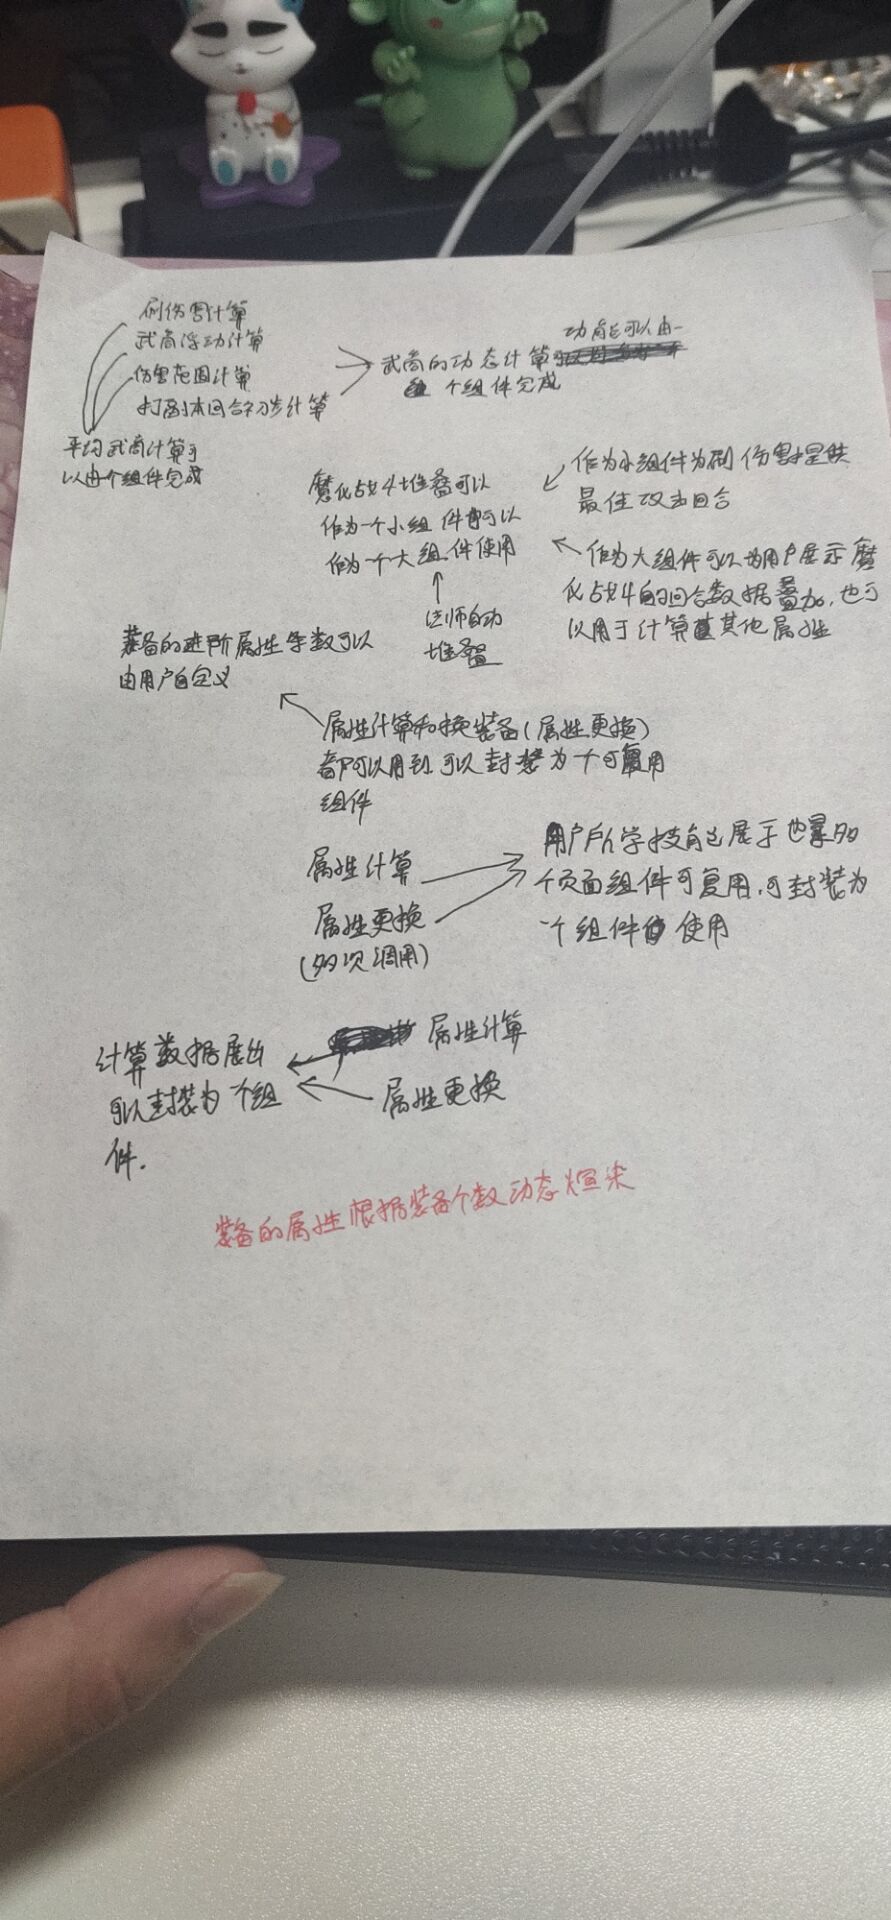 刷伤害计算
武商浮动计算
伤害范围计算
打副本回合初步计算
平均武商计算可
以由个组件完成
功能可以由一
武商的动态计算
个组件完成
魔化战4堆叠可以
作为一个小组件也可以
作为一个大组件使用
作为小组件为刷伤害提供
最佳攻击回合
作为大组件可以为用户展示魔
化战4的回合数据叠加,也可
以用于计算其他属性
法师自动
堆叠
装备的进阶属性条数可以
由用户自定义
属性计算和换装备(属性更换)
都可以用到可以封装为个可复用
组件
属性计算
属性更换
(多次调用)
用户所学技能展示也是多
个页面组件可复用,可封装为
一个组件 使用
计算数据展出
可以封装为个组
件.
属性计算
属性更换
装备的属性根据装备个数动态渲染